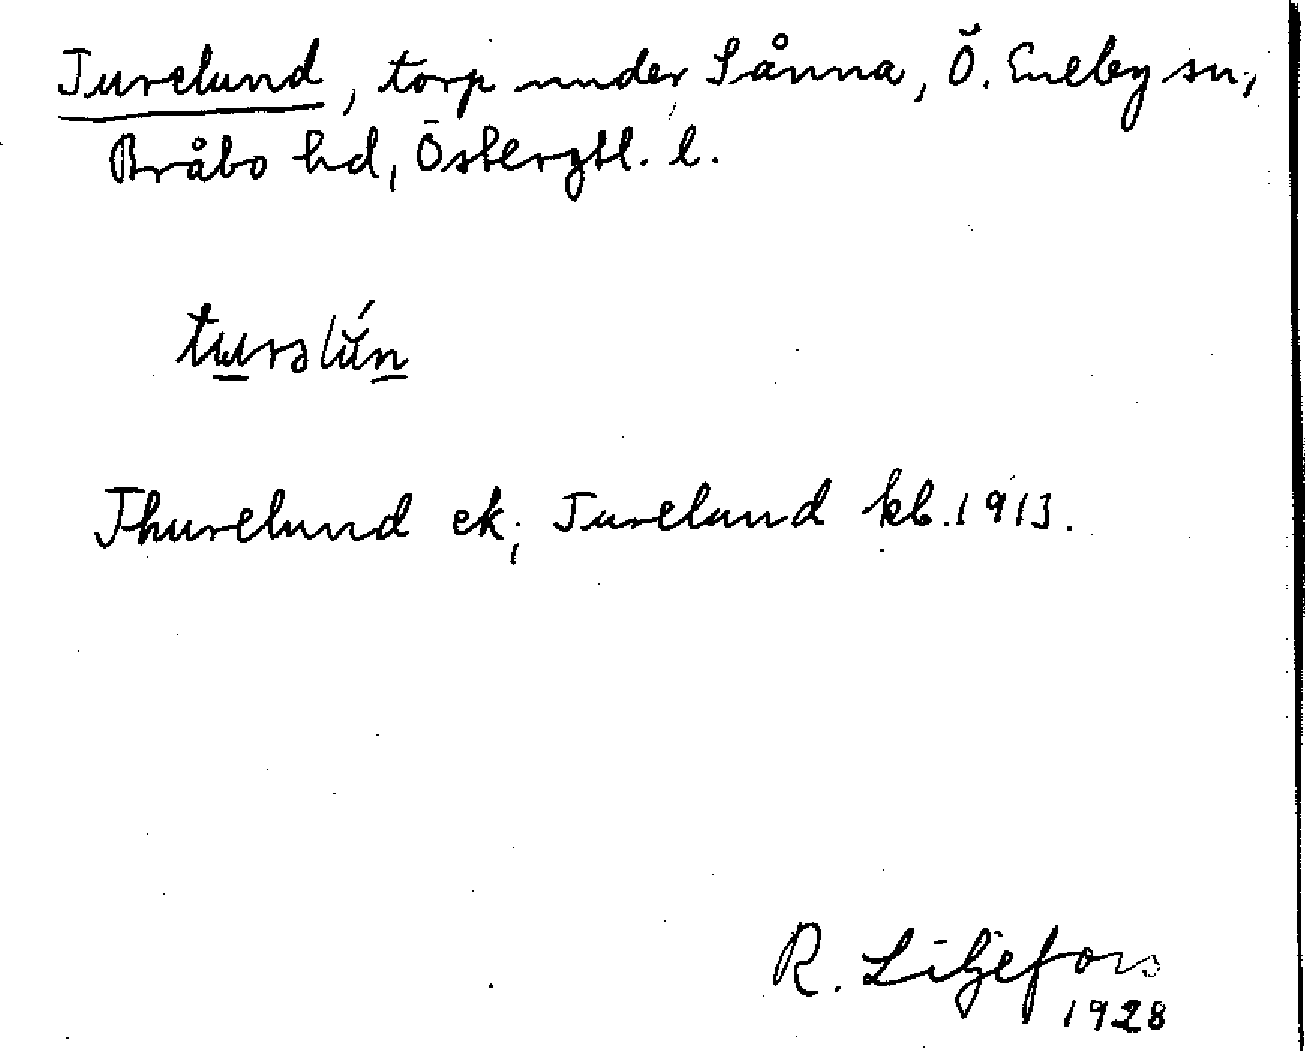 Turelund, torp under Sånna, Ö. Eneby sn,
Bråbo hd, Östergtl. l.
turəlún
Thurelund ek; Turelund kb. 1913.
R. Liljefors
1928